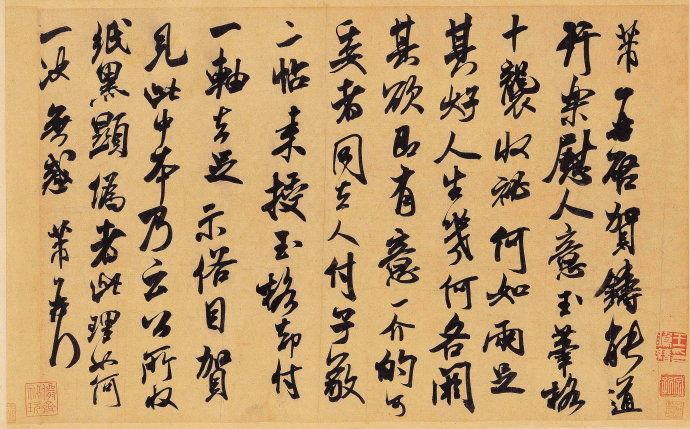 芾再啓賀鑄能道
行樂慰人意玉筆格
十襲收祕何如兩足
其好人生幾何各閼
其欲即有意一介的可
委者同去人付子敬
二帖來授玉格却付
一軸去足示俗目賀
見此中本乃云公所收
紙黑顯僞者此理如何
一决無惑芾頓首